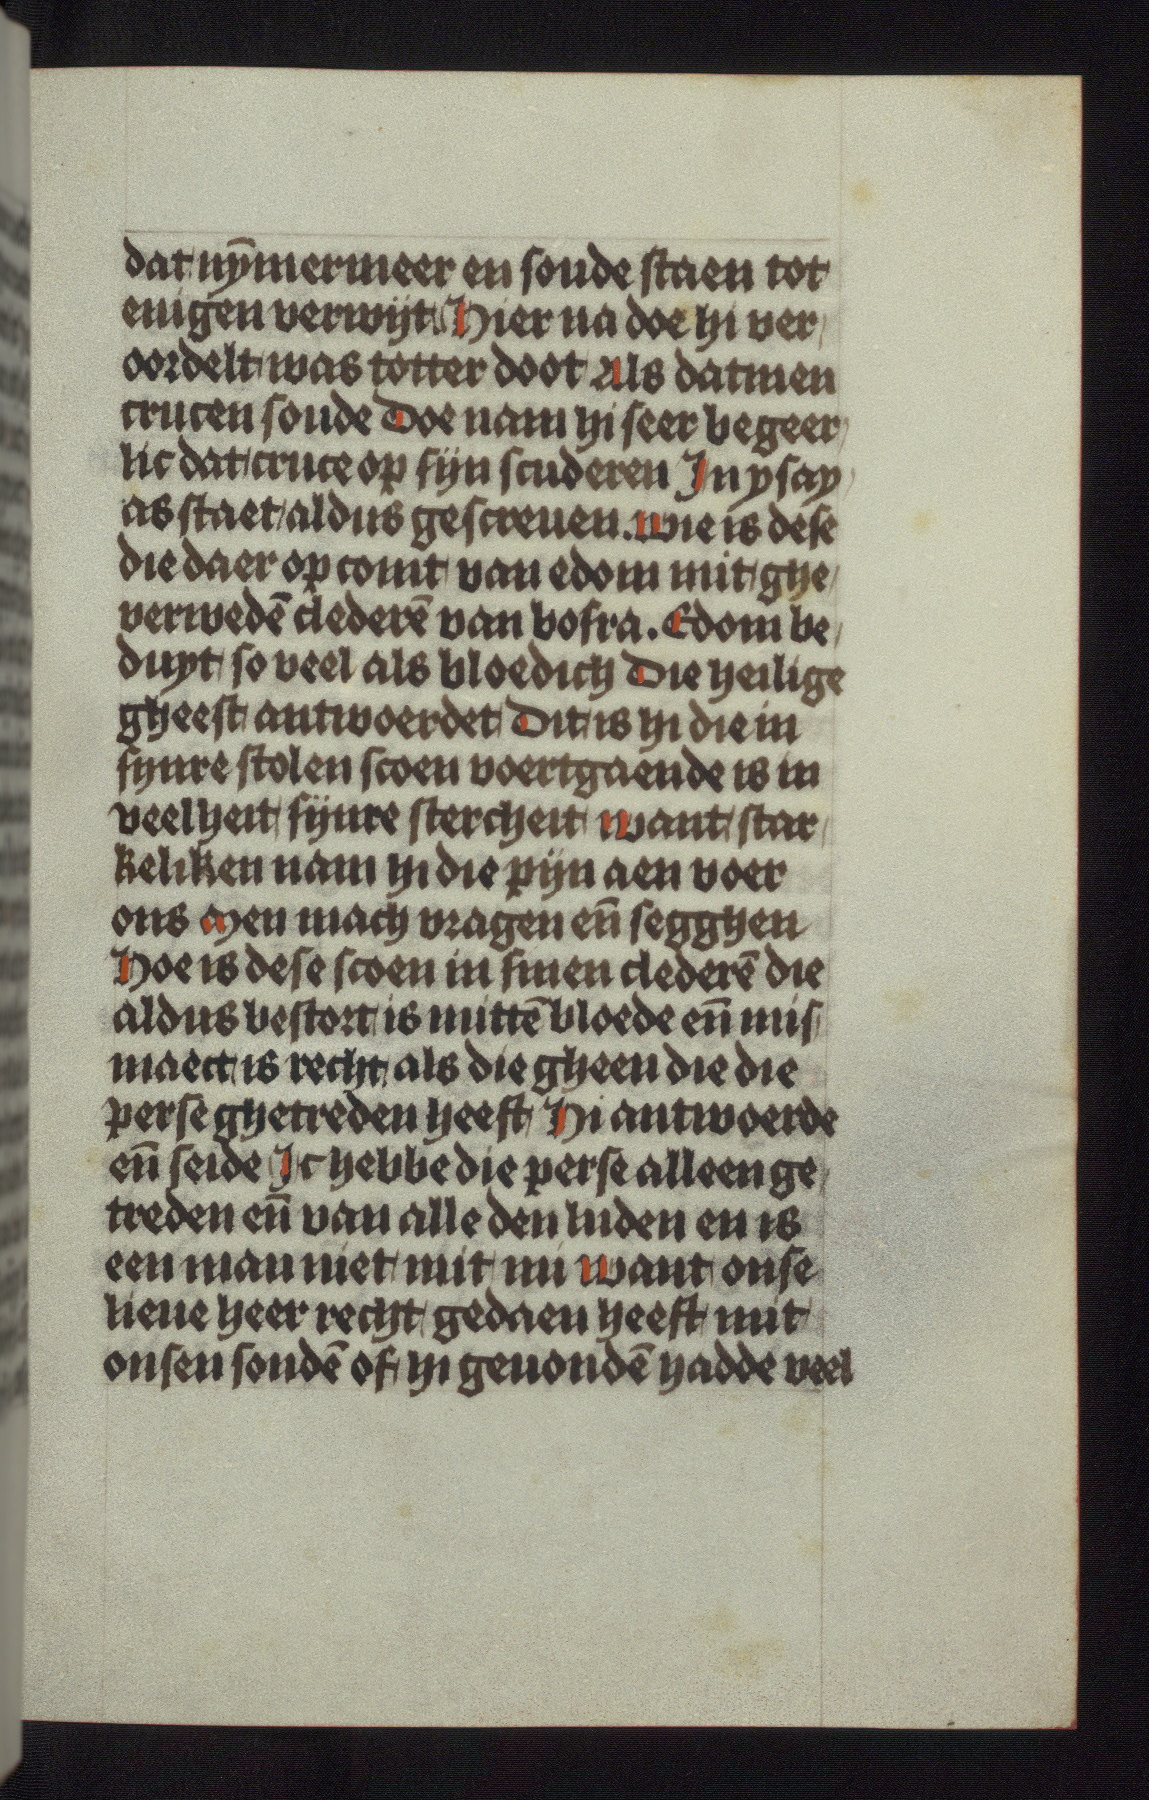 dat nȳmermeer en soude staen tot
enigen verwijt Hier na doe hi ver
oordelt was totter doot Als datmen
crucen soude Doe nam hi seer begeer
lic dat cruce op sijn scuderen In ysay
as staet aldus gescreuen. wie is dese
die daer op comt van edom mit ghe
verwedē clederē van bosra. Edom be
duyt so veel als bloedich Die heilige
gheest antwoerdet Dit is hi die in
sijnre stolen scoen voertgaende is in
veelheit sijnre stercheit want star
keliken nam hi die pijn aen voer
ons Men mach vragen eñ segghen
Hoe is dese scoen in sinen clederē die
aldus bestort is mittē bloede eñ mis
maect is recht als die gheen die die
perse ghetreden heeft Hi antwoerde
eñ seide Ic hebbe die perse alleen ge
treden eñ van alle den luden en is
een man niet mit mi want onse
lieue heer recht gedaen heeft mit
onsen sondē of hi geuondē hadde veel